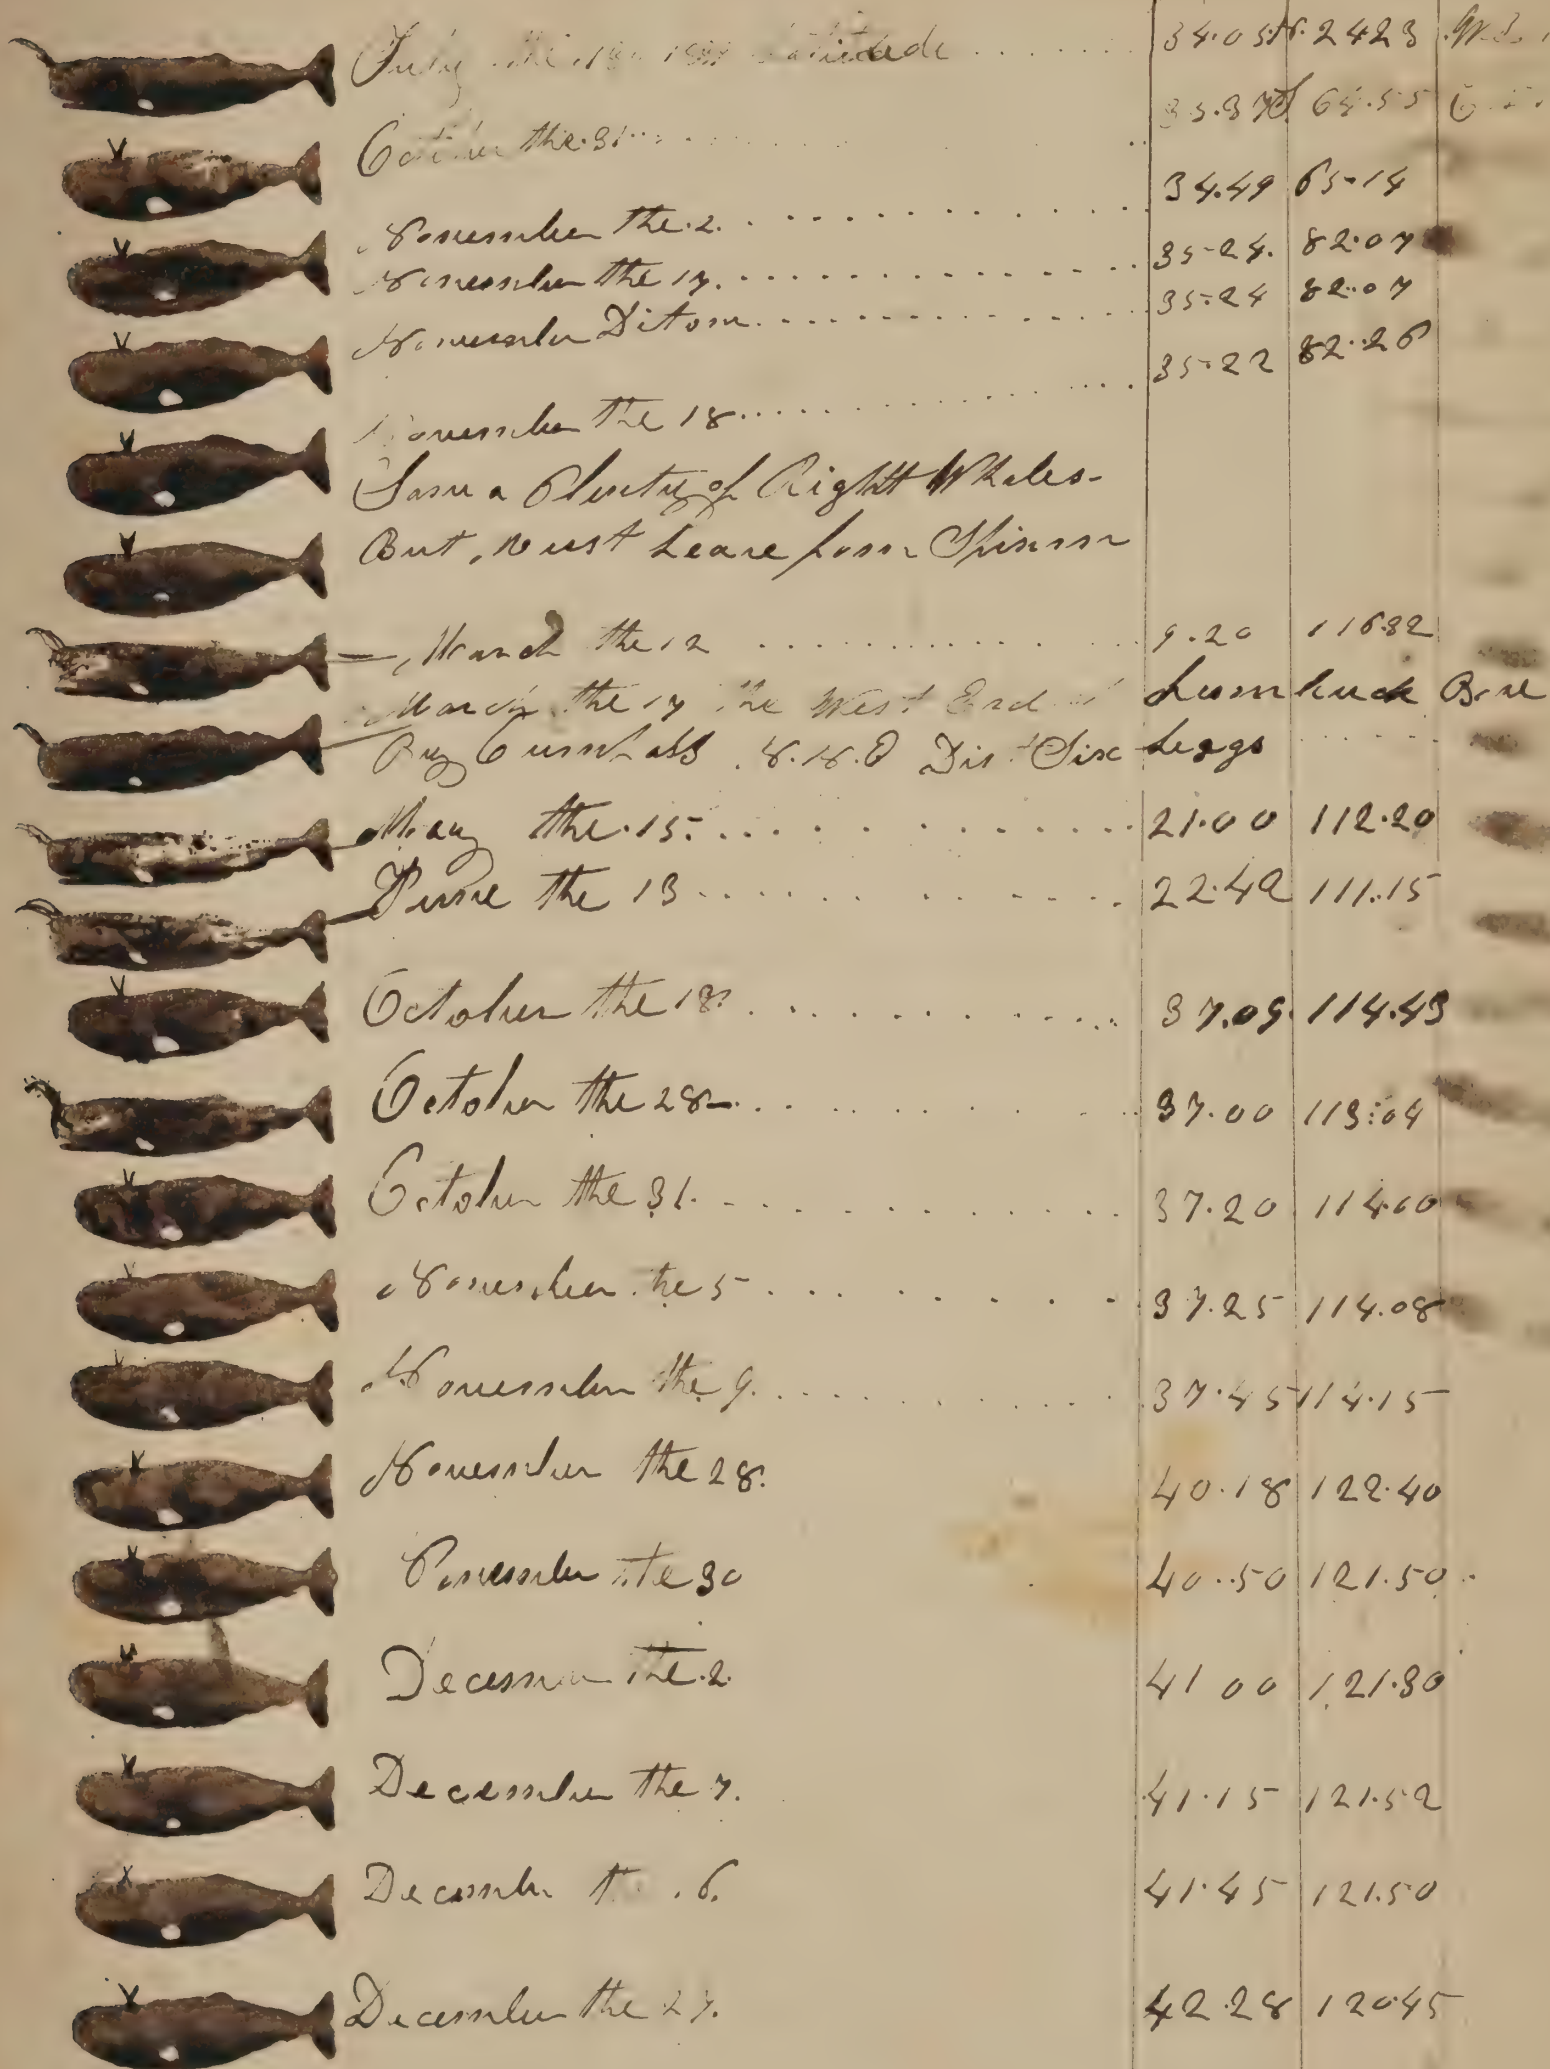 July the 18 Latitude 34.05 N. 2423
October the.31 35.37 S 64.55
November the.2. 34.49 65-14
November the 17. 35-24. 82.07
November Ditom 35-24 82.07
November the 18 35-22 82..26
Saw a Plenty of Right Whales-
But, Must Leave for
March the 12 9.20 116.32
March the 17 the West End Lumbuck Bore
By Cumpass N.N.E Dist Six Legs
May the.15. 21.00 112.20
June the 13 22.42 111.15
October the 18. 37.09. 114.43
October the 28 37.00 113:04
October the 31. 37.20 114.00
November the 5 37.25 114.08
November the 9. 37.45 114.15
November the 28. 40.18 122.40
the 30 40..50 121.50
December the.2. 41 00 121.30
December the 7. 41.15 121.52
December 6. 41.45 121.50
December the 27. 42.28 120.45